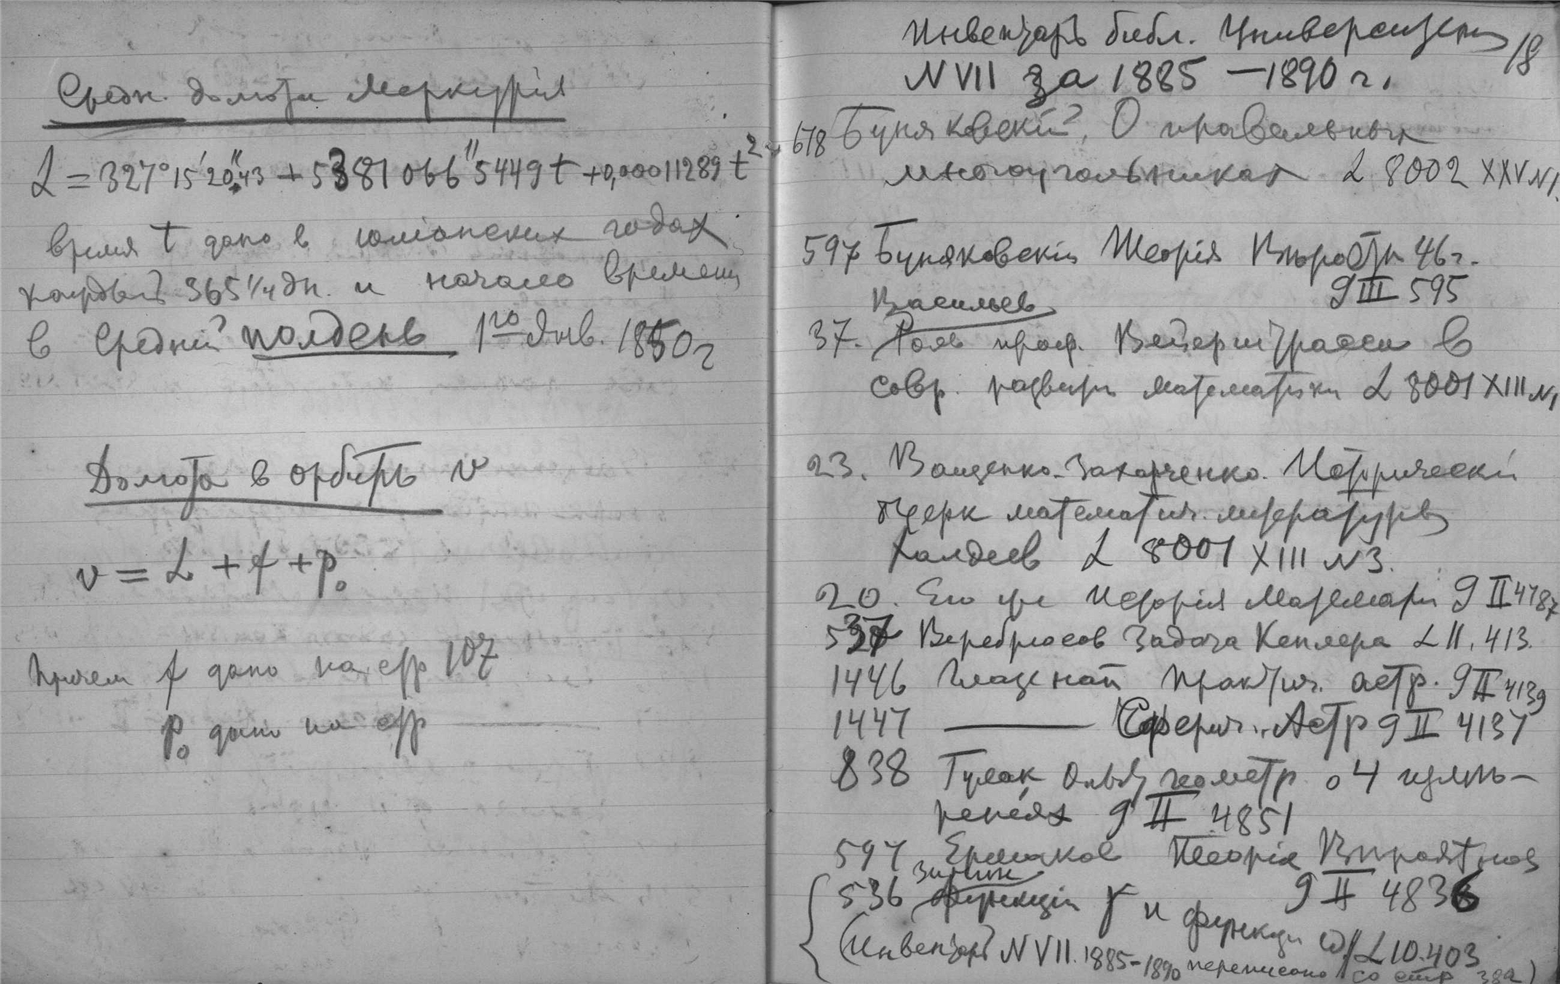 Средн. долгота Меркурія
L = 327° 15' 20",43 + 5381066" 5449 t + 0,00011289 t²
время t дано в юліанских годах
в 365 1/4 дн. и начало времени
в средній полдень 1го Янв. 1850 г
Долгота в орбитѣ v
v = L + f + p₀
Причем f дано на стр 107
p₀ дано на стр
Инвентарь библ. Университета
N VII за 1885 – 1890 г.
18
678 Буняковскій, О правильных
многоугольниках L 8002 XXV N1.
597 Буняковскій Теорія Вѣроятн 46 г.
9 III 595
Васильев
37. Роль проф. Вейерштрасса в
совр. развитіи математики L 8001 XIII N1
23. Ващенко-Захарченко. Историческій
очерк математич. литературы
Халдеев L 8001 XIII N3.
20. Его же Исторія Математ 9 II 4787
537 Веребрюсов Задача Кеплера L II. 413.
1446 практич. астр. 9 II 4139
1447 Сферич. Астр 9 II 4137
838 Гулак Опыт геометр. о 4 измѣ-
реніях 9 II 4851
597 Ермаков Теорія Вѣроятнос
9 II 4836
Зинин
536 Функціи γ и функціи ω L 10.403
(Инвентарь N VII. 1885-1890 переписано со стр 38а)